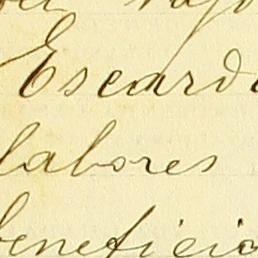 Escard
labores
beneficio